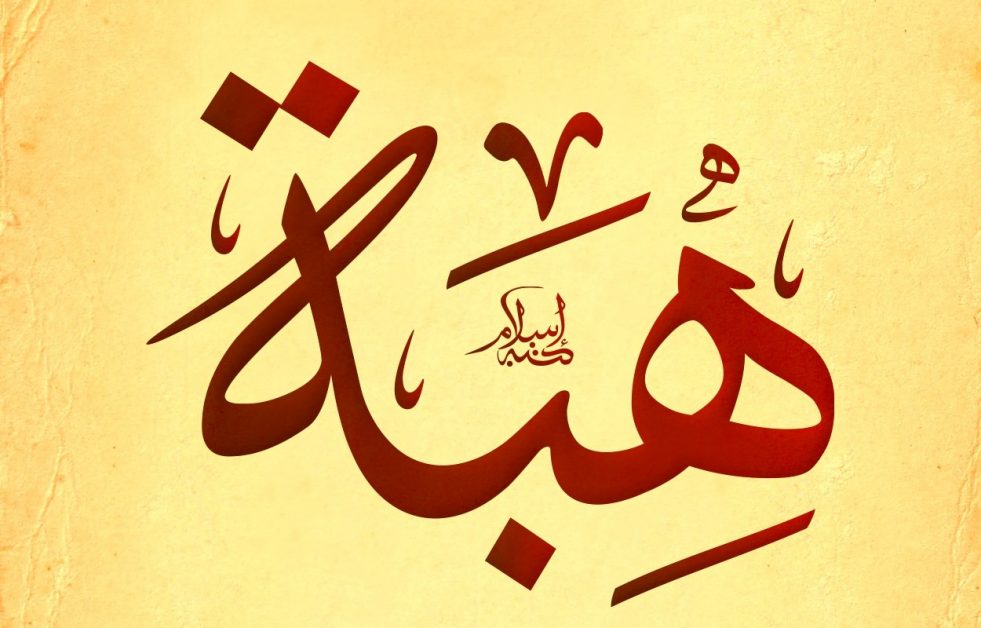 هِبَة
كتبه إسلام